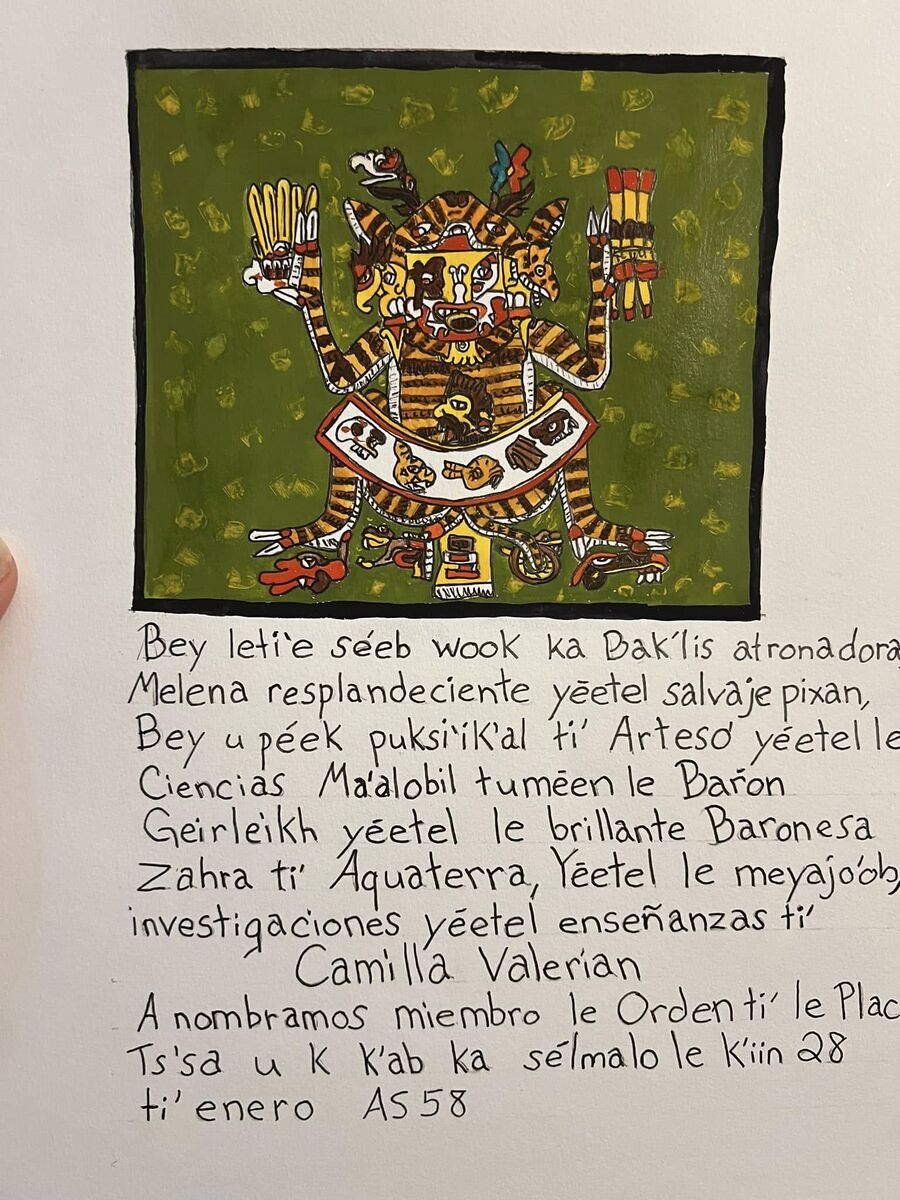 Bey leti'e séeb wook ka Bak'lis atronadora,
Melena resplandeciente yéetel salvaje pixan,
Bey u péek puksi'ik'al ti' Arteso' yéetel le
Ciencias Ma'alobil tuméen le Baron
Geirleikh yéetel le brillante Baronesa
Zahra ti' Aquaterra, Yéetel le meyajo'ob,
investigaciones yéetel enseñanzas ti'
Camilla Valerian
A nombramos miembro le Orden ti' le Plac
Ts'sa u k k'ab ka sélmalo le k'iin 28
ti' enero AS 58